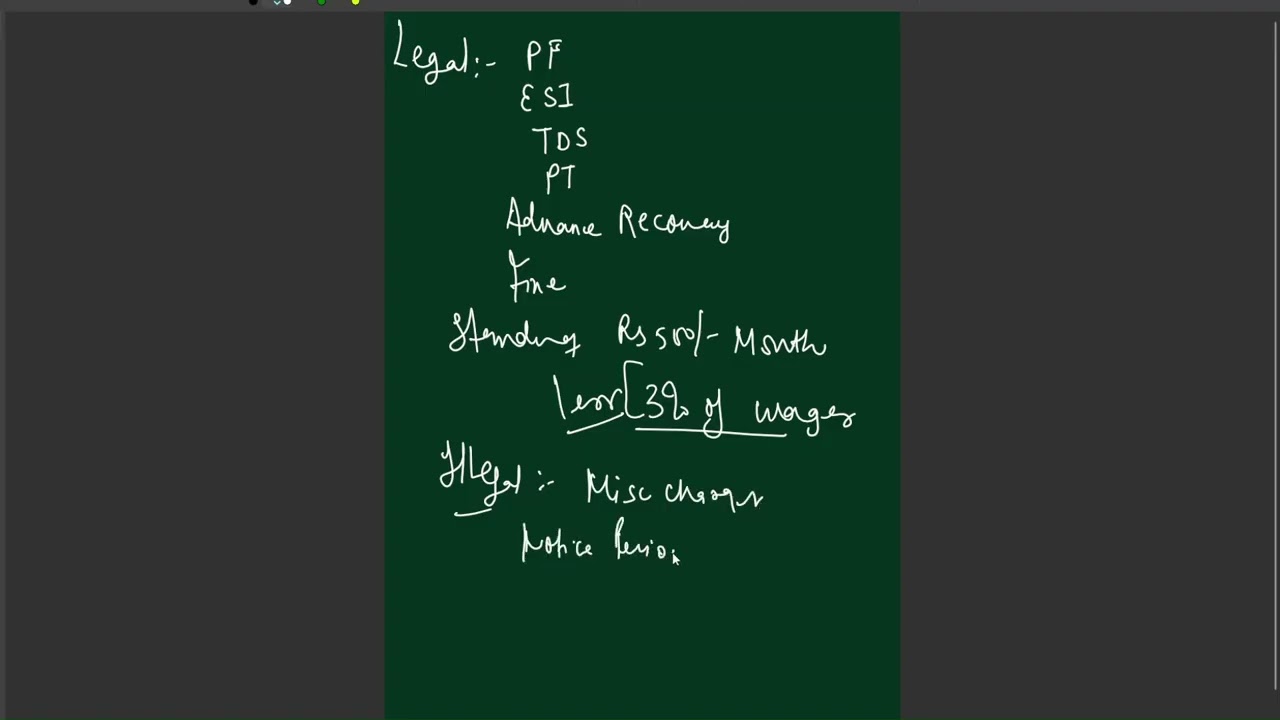 Legal:- PF
ESI
TDS
PT
Advance Recovery
Fine
Rs 500/- Month
3% of wages
Illegal:- Misc charges
Notice Perio